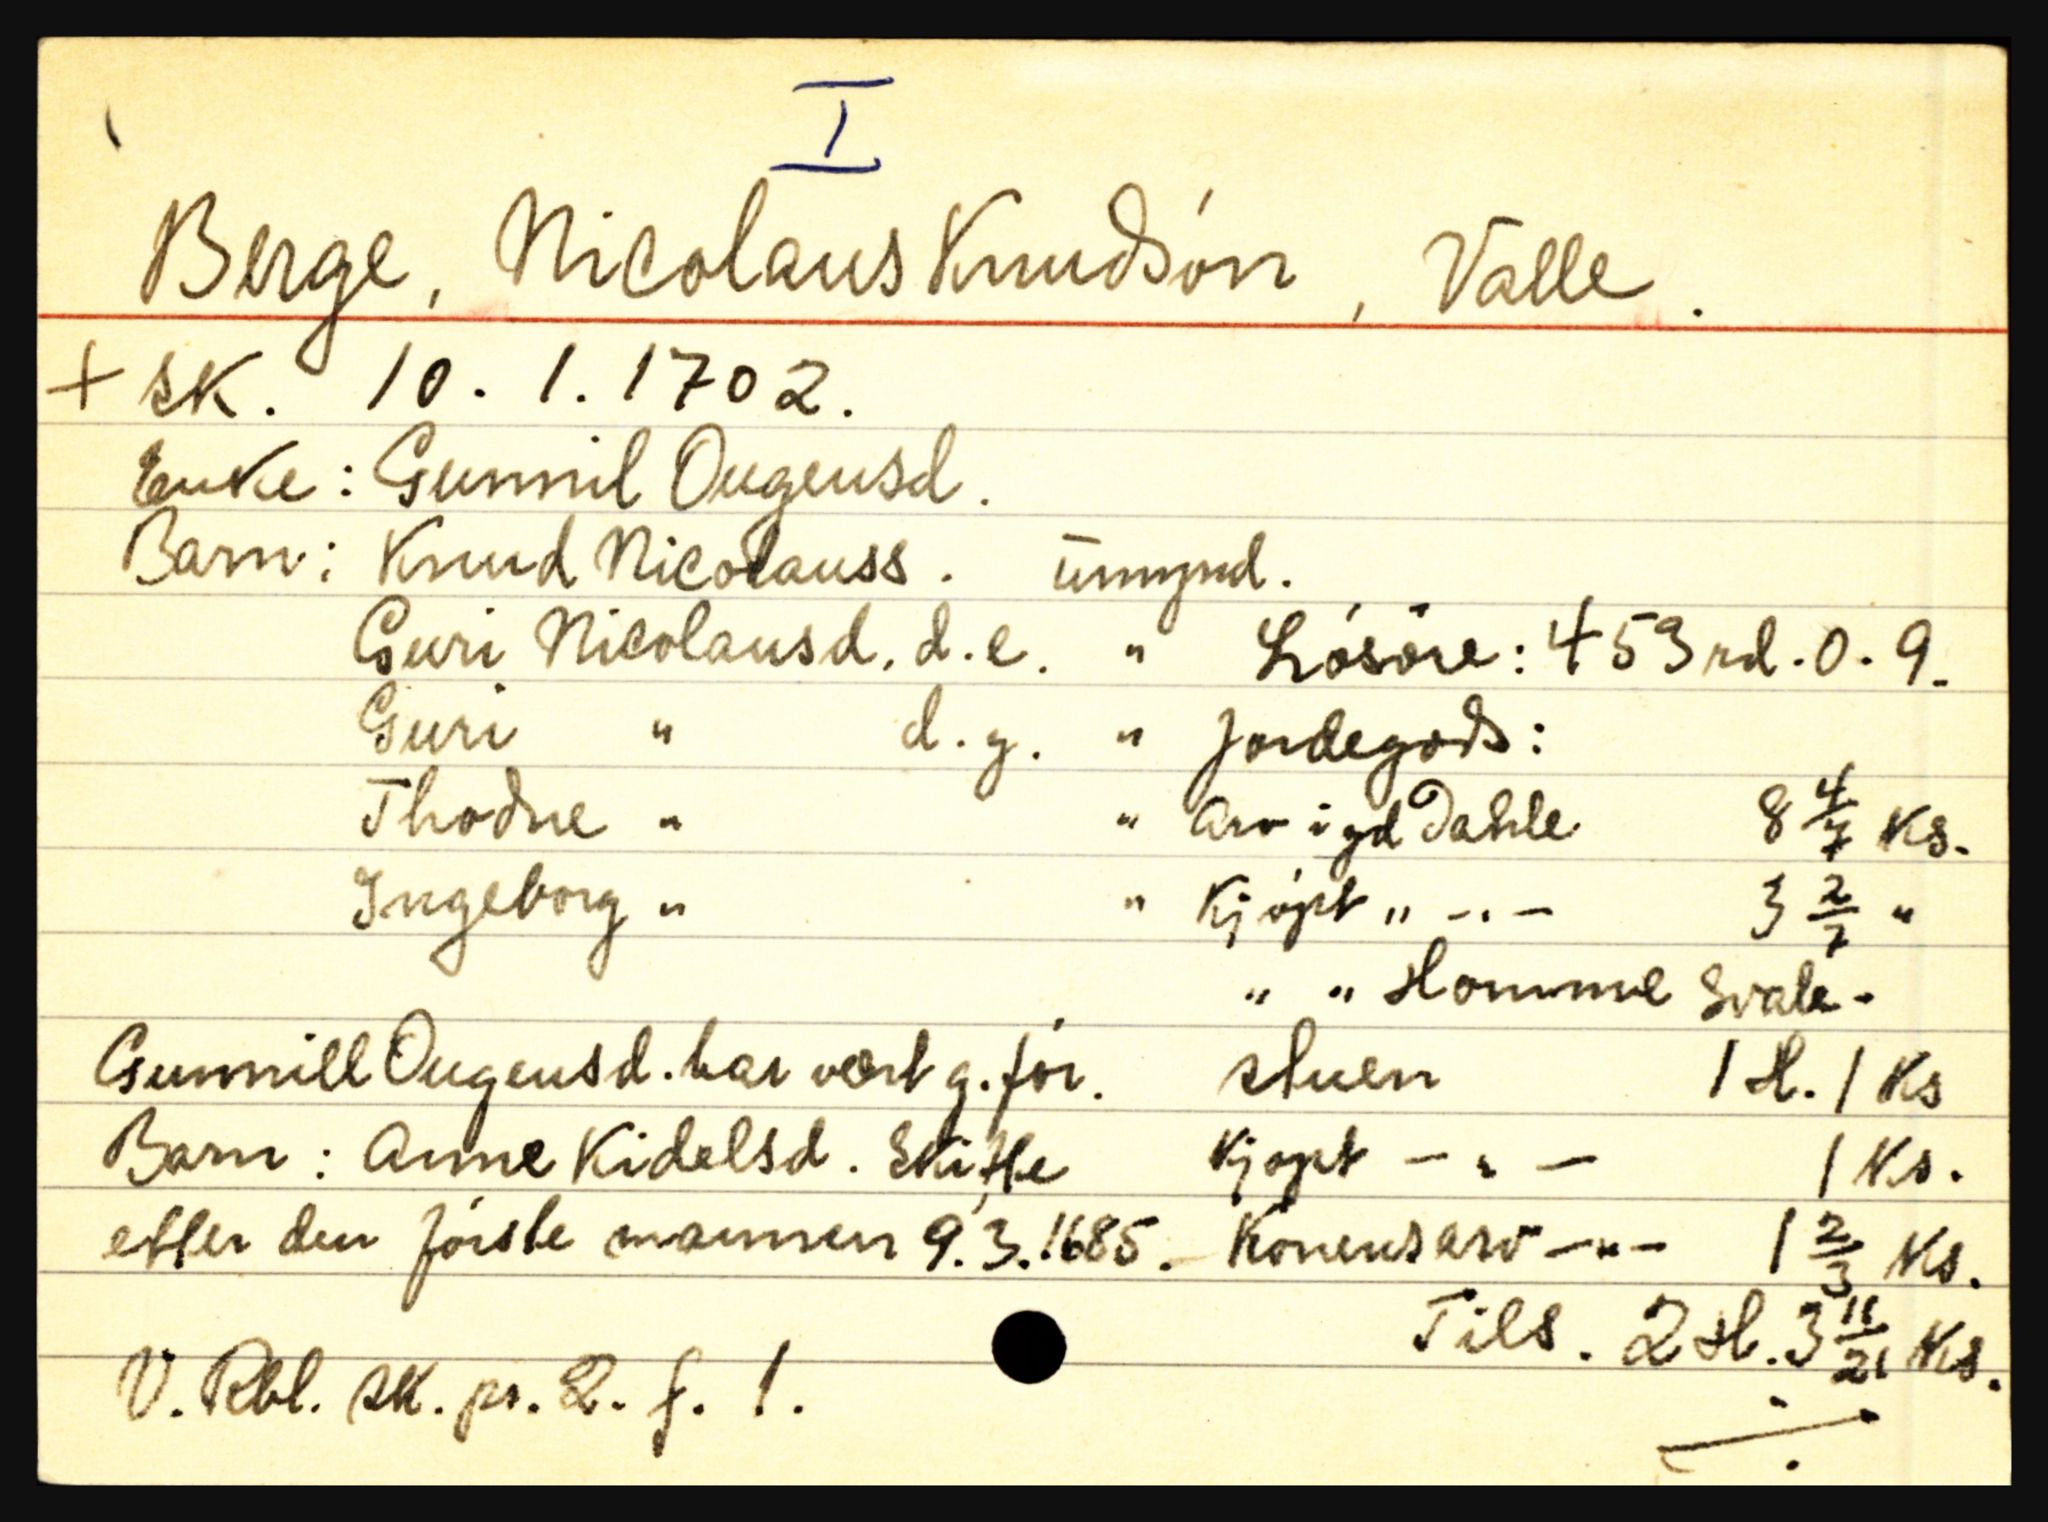 I
Berge, Nicolaus Knudsón, Valle.
+ sk. 10. 1. 1702.
Enke: Gunnil Ougensd.
Barn: Knud Nicolauss. umynd.
Guri Nicolausd. d.e. " Lósóre: 453 rd. 0. 9.
Guri " d.y. " Jordegods:
Thodne " " Arv i gd Dahle 8 4/7 Ks.
Ingeborg " " Kjópt " -"- 3 2/7 "
" " Homme Svale-
Gunnill Ougensd. har vært g. fór. stuen 1 H. 1 Ks
Barn: Anne Kidelsd. Skifte Kjópt -"- 1 Ks.
etter den fórste mannen 9.3.1685. Konens arv -"- 1 2/3 Ks.
Tils. 2 H. 3 11/21 Ks.
V. Rbl. sk. pr. 2. f. 1.